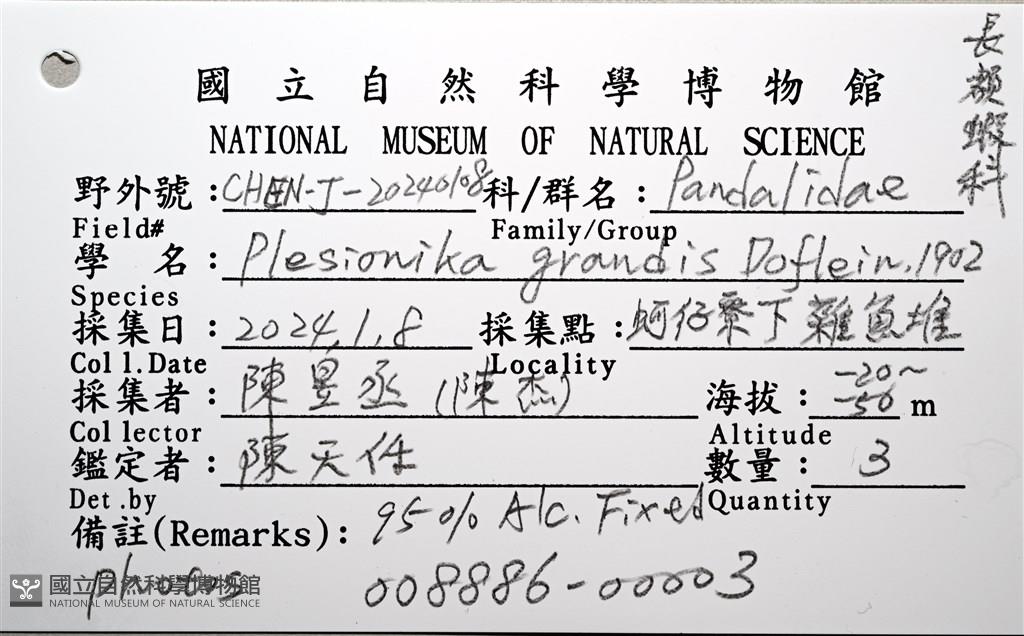 長額蝦科
國立自然科學博物館
NATIONAL MUSEUM OF NATURAL SCIENCE
野外號:CHEN-J-20240108 科/群名:Pandalidae
Field# Family/Group
學 名:Plesionika grandis Doflein, 1902
Species
採集日:2024,1,8 採集點:蚵仔寮下雜魚堆
Coll.Date Locality
採集者:陳昱丞 (陳杰) 海拔:-20~-50 m
Collector Altitude
鑑定者:陳天任 數量:3
Det.by Quantity
備註(Remarks): 95% Alc. Fixed
photos 008886-00003
國立自然科學博物館
NATIONAL MUSEUM OF NATURAL SCIENCE